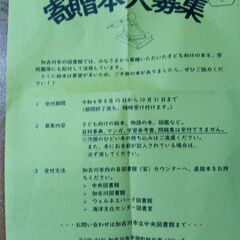 寄贈本大募集
加古川市の図書館では、みなさまから寄贈いただいた子ども向けの本を、学
校園等にも配付して活用しています。
とくに絵本は要望が多いため、ご不用の本がありましたら、ぜひご協力くださ
い!
1 受付期間
令和6年8月15日から10月31日まで
(期間終了後も、随時受け付けます。)
2 募集内容
子ども向けの絵本、物語の本、図鑑など。
百科事典、マンガ、学習参考書、問題集は受付できません。
※汚損のひどい本は持ち込みをご遠慮ください。
また、本にお名前が記入されている場合は、
3 受付方法
加古川市内の各図書館(室)カウンターへ、直接本をお持
ちください。
➢ 中央図書館
➢ 加古川図書館
➢ ウェルネスパーク図書館
➢ 海洋文化センター図書室
お問い合わせは加古川市立中央図書館まで